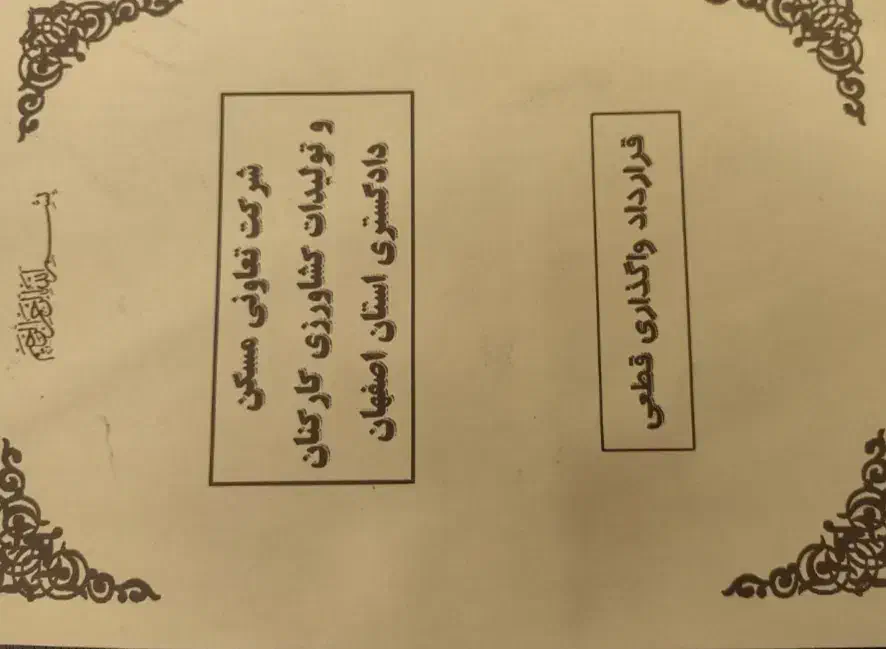 بسم الله الرحمن الرحیم
شرکت تعاونی مسکن
و تولیدات کشاورزی کارکنان
دادگستری استان اصفهان
قرارداد واگذاری قطعی